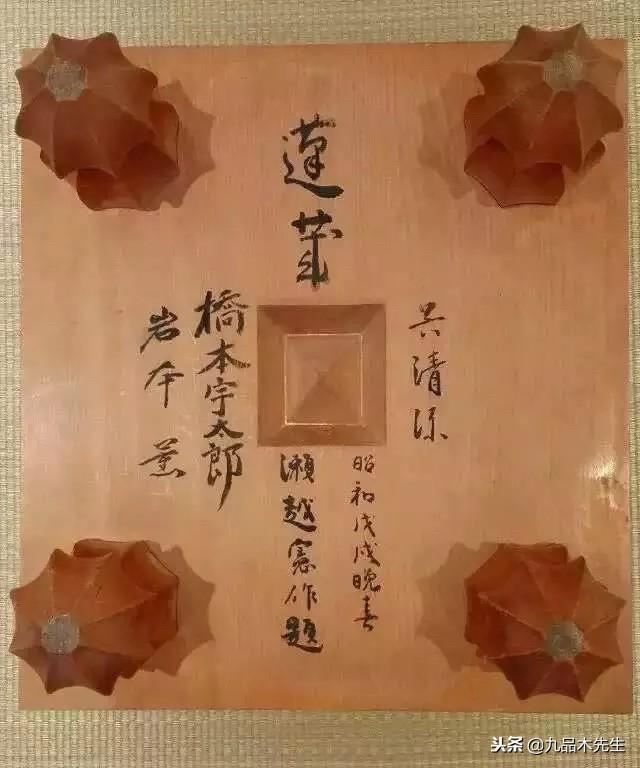 蓬莱
呉清源
昭和戊戌晚春
瀬越憲作題
橋本宇太郎
岩本薫
头条 @九品木先生